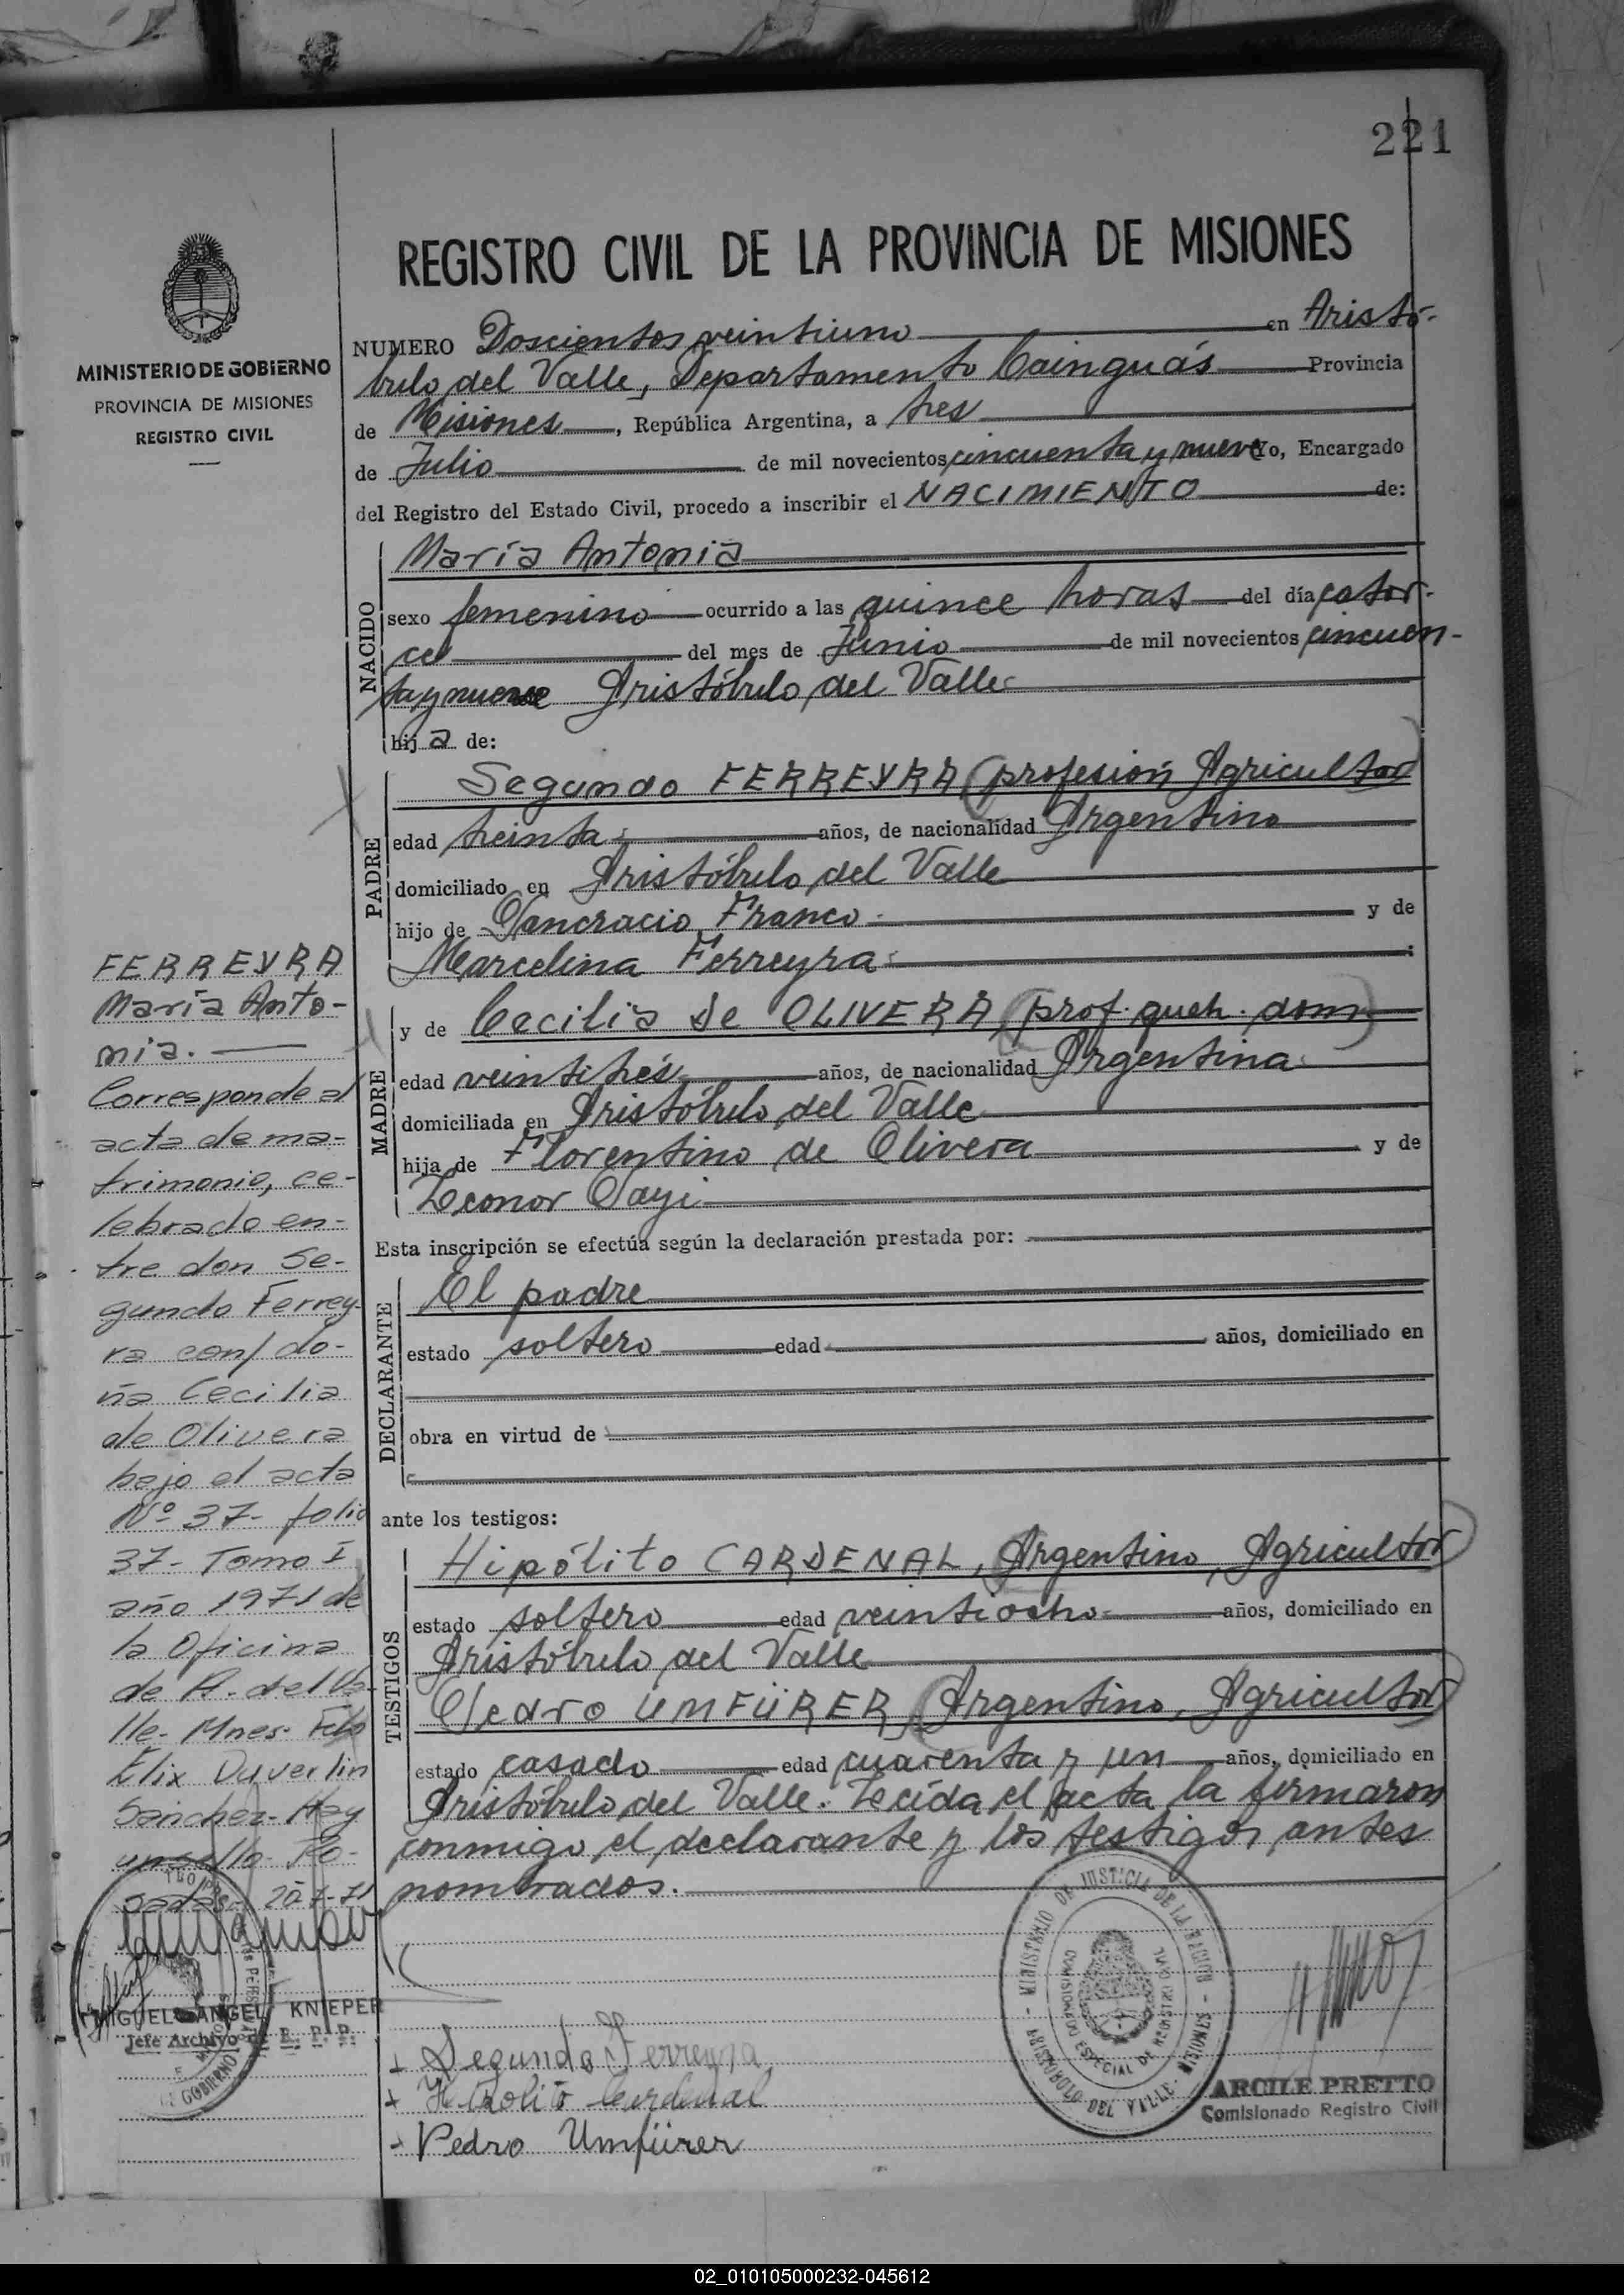 221
REGISTRO CIVIL DE LA PROVINCIA DE MISIONES
MINISTERIO DE GOBIERNO
PROVINCIA DE MISIONES
REGISTRO CIVIL
NUMERO Doscientos veintiuno en Aristó-
bulo del Valle, Departamento Cainguás Provincia
de Misiones, República Argentina, a tres
de Julio de mil novecientos cincuenta y nueve Yo, Encargado
del Registro del Estado Civil, procedo a inscribir el NACIMIENTO de:
NACIDO
María Antonia
sexo femenino ocurrido a las quince horas del día cator-
ce del mes de Junio de mil novecientos cincuen-
ta y nueve Aristóbulo del Valle
hija de:
PADRE
Segundo FERREYRA (profesión Agricultor
edad treinta años, de nacionalidad Argentino
domiciliado en Aristóbulo del Valle
hijo de Pancracio Franco y de
Marcelina Ferreyra
MADRE
y de Cecilia de OLIVERA (prof. queh. dom)
edad veintitrés años, de nacionalidad Argentina
domiciliada en Aristóbulo del Valle
hija de Florentino de Olivera y de
Leonor Payi
Esta inscripción se efectúa según la declaración prestada por:
DECLARANTE
El padre
estado soltero edad años, domiciliado en
obra en virtud de
ante los testigos:
TESTIGOS
Hipólito CARDENAL, Argentino, Agricultor
estado soltero edad veintiocho años, domiciliado en
Aristóbulo del Valle
Pedro UMFÜRER, (Argentino, Agricultor)
estado casado edad cuarenta y un años, domiciliado en
Aristóbulo del Valle. Leída el acta la firmaron
conmigo el declarante y los testigos antes
nombrados.
FERREYRA
María Anto-
nia.
Corresponde al
acta de ma-
trimonio, ce-
lebrado en-
tre don Se-
gundo Ferrey-
ra con/ do-
ña Cecilia
de Olivera
bajo el acta
Nº 37- folio
37- Tomo I
año 1971 de
la Oficina
de A. del Va-
lle- Mnes-
Elix Duverlin
Sanchez- Hay
un sello- Po-
sadas
MIGUEL ANGEL KNIEPER
Jefe Archivo de R. P. P.
Segundo Ferreyra
Hipolito Cardenal
Pedro Umfürer
MINISTERIO DE JUSTICIA DE LA NACION - MISIONES
ARISTOBULO DEL VALLE
COMISIONADO ESPECIAL DE REGISTRO CIVIL
ARCILE PRETTO
Comisionado Registro Civil
02_010105000232-045612